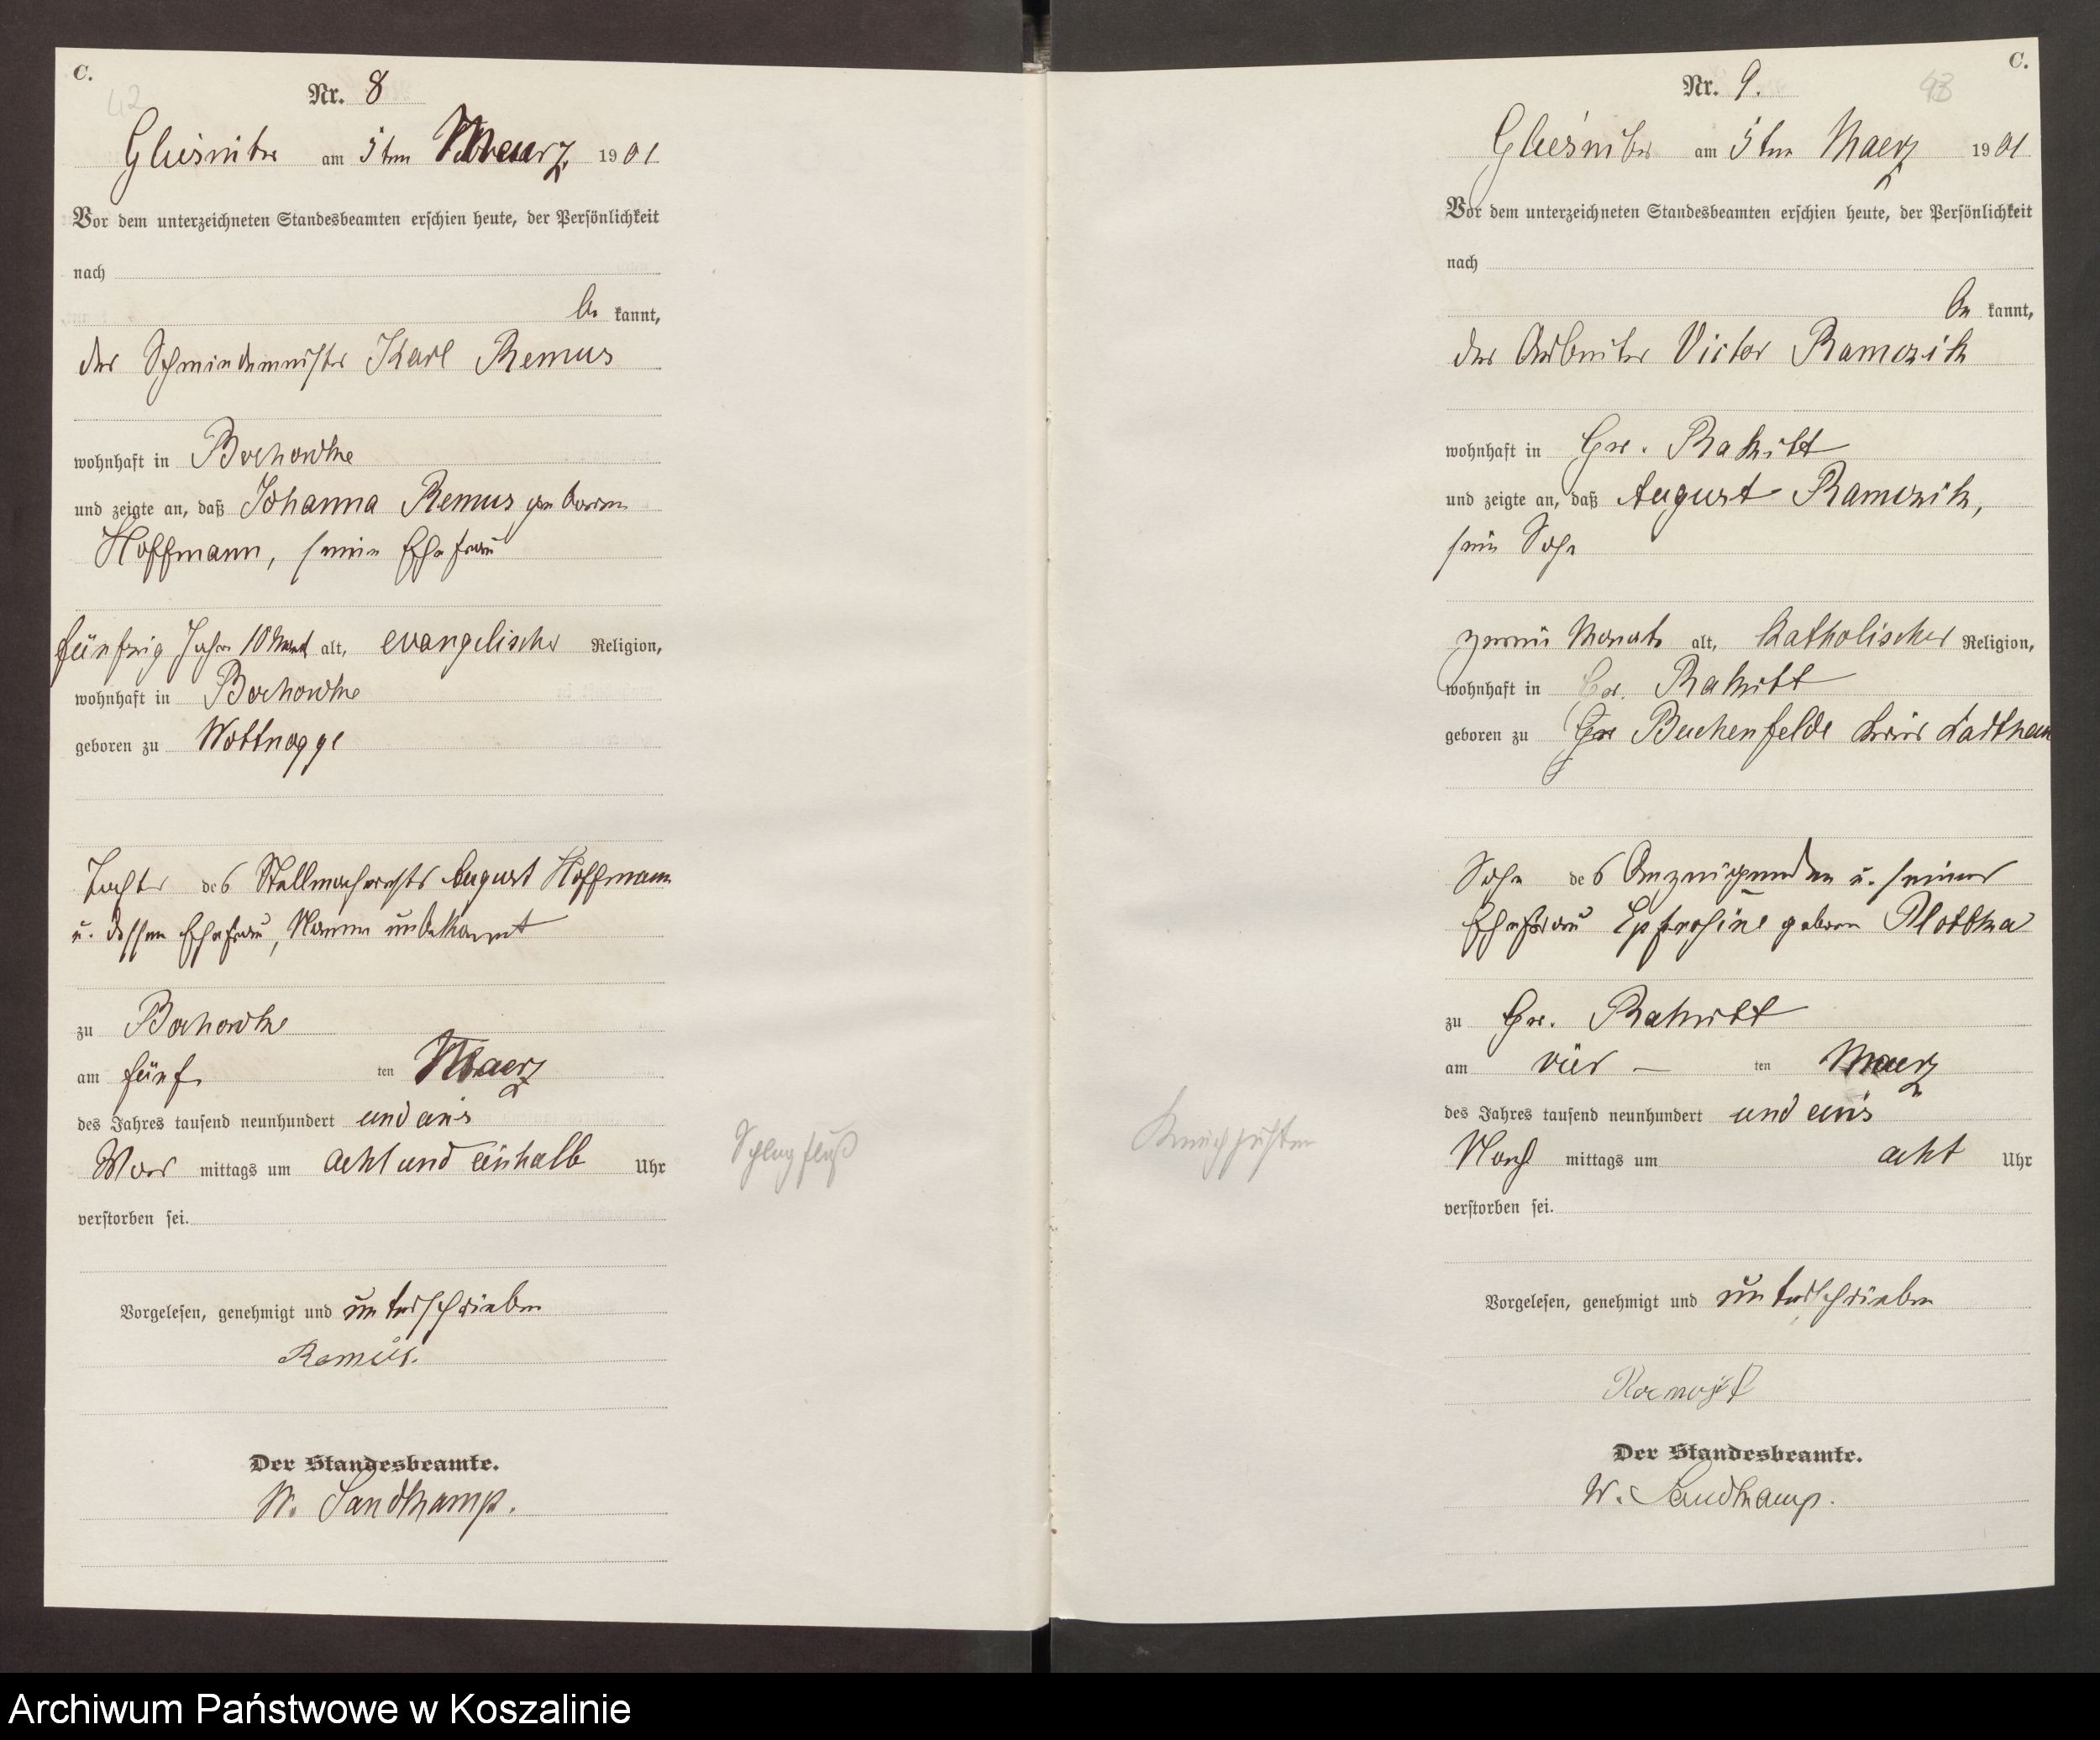 C.
42
Nr. 8
Gliesnitz am 5ten Maerz 1901
Vor dem unterzeichneten Standesbeamten erschien heute, der Persönlichkeit
nach
be kannt,
der Schmiedemeister Karl Remus
wohnhaft in Bochowke
und zeigte an, daß Johanna Remus geborene
Hoffmann, seine Ehefrau
fünfzig Jahre 10 Monat alt, evangelischer Religion,
wohnhaft in Bochowke
geboren zu Wottnogge
Tochter des Stellmachers August Hoffmann
u. dessen Ehefrau, Namen unbekannt
zu Bochowke
am fünf ten Maerz
des Jahres tausend neunhundert und eins
Vor mittags um acht und einhalb Uhr
verstorben sei.
Schlagfluß
Vorgelesen, genehmigt und unterschrieben
Remus.
Der Standesbeamte.
W. Sandkamp.
C.
43
Nr. 9.
Gliesnitz am 5ten Maerz 1901
Vor dem unterzeichneten Standesbeamten erschien heute, der Persönlichkeit
nach
be kannt,
der Arbeiter Victor Ramczik
wohnhaft in Gr. Rakitt
und zeigte an, daß August Ramczik,
sein Sohn
zwei Monate alt, katholischer Religion,
wohnhaft in Gr. Rakitt
geboren zu Buchenfelde Kreis
Sohn des Anzeigenden u. seiner
Ehefrau geboren Plottka
zu Gr. Rakitt
am vier ten Maerz
des Jahres tausend neunhundert und eins
Nach mittags um acht Uhr
verstorben sei.
Keuchhusten
Vorgelesen, genehmigt und unterschrieben
Der Standesbeamte.
W. Sandkamp.
Archiwum Państwowe w Koszalinie